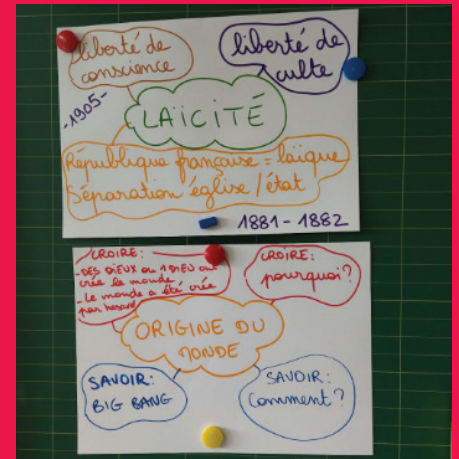 liberté de
conscience
liberté de
culte
-1905-
LAÏCITÉ
République française = laïque
Séparation église / état
1881 - 1882
CROIRE:
- DES DIEUX ou 1 DIEU ont
crée le monde
- Le monde a été crée
par hasard
CROIRE:
pourquoi ?
ORIGINE DU
MONDE
SAVOIR:
BIG BANG
SAVOIR:
Comment ?